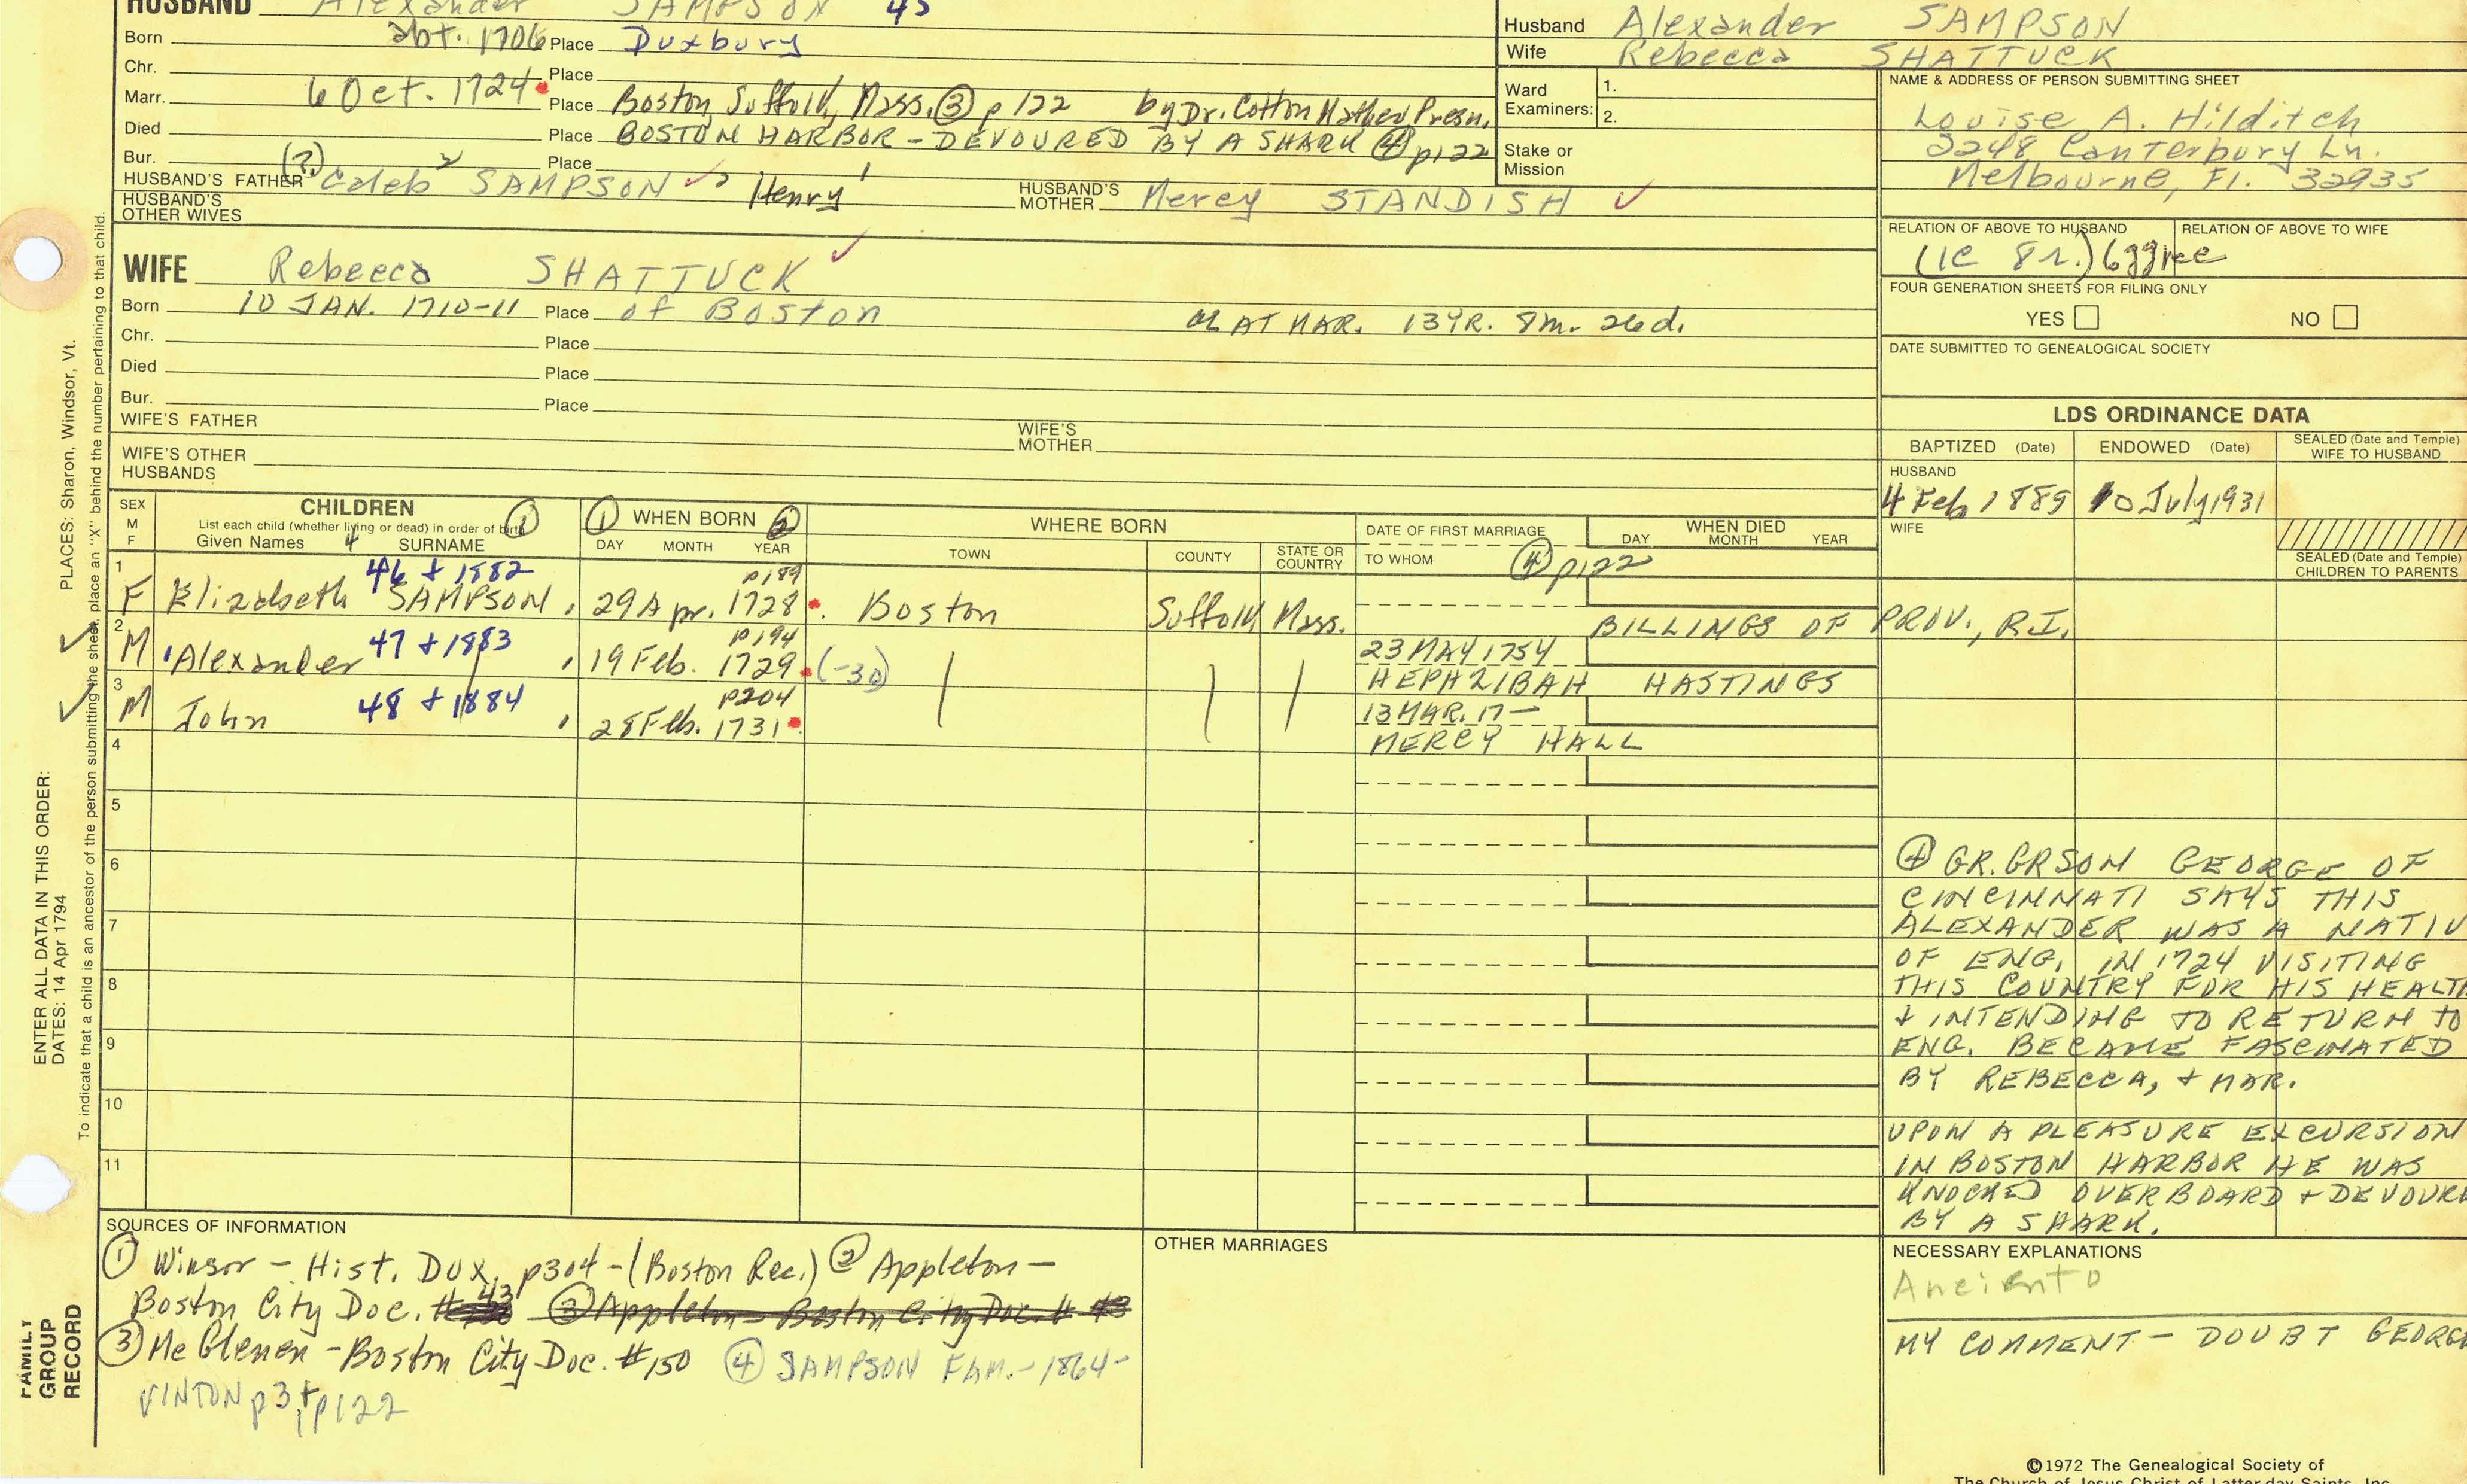 HUSBAND Alexander SAMPSON 45
Born abt. 1706 Place Duxbury
Chr. Place
Marr. 6 Oct. 1724 Place Boston, Suffolk, Mass. ③ p 122 by Dr. Cotton Mather Presn.
Died Place BOSTON HARBOR - DEVOURED BY A SHARK ④ p122
Bur. Place
HUSBAND'S FATHER (?) Caleb SAMPSON 2 Henry 1 HUSBAND'S MOTHER Mercy STANDISH ✓
HUSBAND'S OTHER WIVES
WIFE Rebecca SHATTUCK ✓
Born 10 JAN. 1710-11 Place of Boston AT MAR. 13YR. 8m. 26d.
Chr. Place
Died Place
Bur. Place
WIFE'S FATHER WIFE'S MOTHER
WIFE'S OTHER HUSBANDS
Husband Alexander SAMPSON
Wife Rebecca SHATTUCK
Ward Examiners: 1.
2.
Stake or Mission
NAME & ADDRESS OF PERSON SUBMITTING SHEET
Louise A. Hilditch
2248 Canterbury Ln.
Melbourne, Fl. 32935
RELATION OF ABOVE TO HUSBAND RELATION OF ABOVE TO WIFE
(1C 8r.) 6ggnce
FOUR GENERATION SHEETS FOR FILING ONLY
YES NO
DATE SUBMITTED TO GENEALOGICAL SOCIETY
LDS ORDINANCE DATA
BAPTIZED (Date) ENDOWED (Date) SEALED (Date and Temple) WIFE TO HUSBAND
HUSBAND
4 Feb 1889 10 July 1931
WIFE
SEALED (Date and Temple) CHILDREN TO PARENTS
SEX M F CHILDREN ① ① WHEN BORN WHERE BORN DATE OF FIRST MARRIAGE WHEN DIED
List each child (whether living or dead) in order of birth
Given Names 4 SURNAME DAY MONTH YEAR TOWN COUNTY STATE OR COUNTRY TO WHOM ④ p122 DAY MONTH YEAR
1 46 + 1882 p189
F Elizabeth SAMPSON 29 Apr. 1728 Boston Suffolk Mass. BILLINGS OF PROV., R.I.
2 47 + 1883 p194 23 MAY 1754
M Alexander 19 Feb. 1729 (-30) HEPHZIBAH HASTINGS
3 48 + 1884 p204 13 MAR. 17—
M John 28 Feb. 1731 MERCY HALL
4
5
6
7
8
9
10
11
④ GR.GRSON GEORGE OF
CINCINNATI SAYS THIS
ALEXANDER WAS A NATIV
OF ENG. IN 1724 VISITING
THIS COUNTRY FOR HIS HEALT
+ INTENDING TO RETURN TO
ENG. BECAME FASCINATED
BY REBECCA, + MAR.
UPON A PLEASURE EXCURSION
IN BOSTON HARBOR HE WAS
KNOCKED OVERBOARD + DEVOURE
BY A SHARK.
SOURCES OF INFORMATION
① Winsor - Hist. Dux. p304 - (Boston Rec.) ② Appleton -
Boston City Doc. # 43 ③ Appleton - Boston City Doc. # 43
③ McGlenen - Boston City Doc. #150 ④ SAMPSON FAM. - 1864 -
VINTON p3 + p122
OTHER MARRIAGES
NECESSARY EXPLANATIONS
MY COMMENT - DOUBT GEORG
©1972 The Genealogical Society of
The Church of Jesus Christ of Latter-day Saints, Inc.
PLACES: Sharon, Windsor, Vt.
To indicate that a child is an ancestor of the person submitting the sheet, place an "X" behind the number pertaining to that child.
ENTER ALL DATA IN THIS ORDER:
DATES: 14 Apr 1794
FAMILY GROUP RECORD